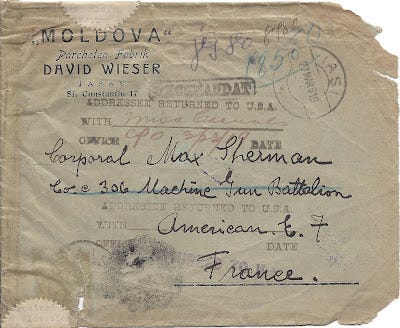 „MOLDOVA“
Parchetten-Fabrik
DAVID WIESER
IASSY
Sf. Constantin 17
RECOMANDAT
IASI
ADDRESSEE RETURNED TO U.S.A.
WITH
OFFICE CPO 3/3/19 DATE
Corporal Max Sherman
Co. C 306 Machine Gun Battalion
ADDRESSEE RETURNED TO U.S.A.
WITH American E. F
OFFICE DATE
France.